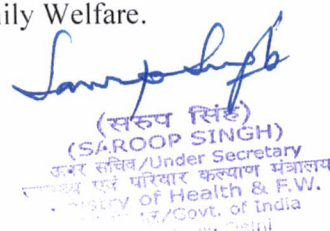 ily Welfare.
(सरुप सिंह)
(SAROOP SINGH)
सचिव/Under Secretary
एवं परिवार कल्याण मंत्रालय
of Health & F.W.
/Govt. of India
Delhi